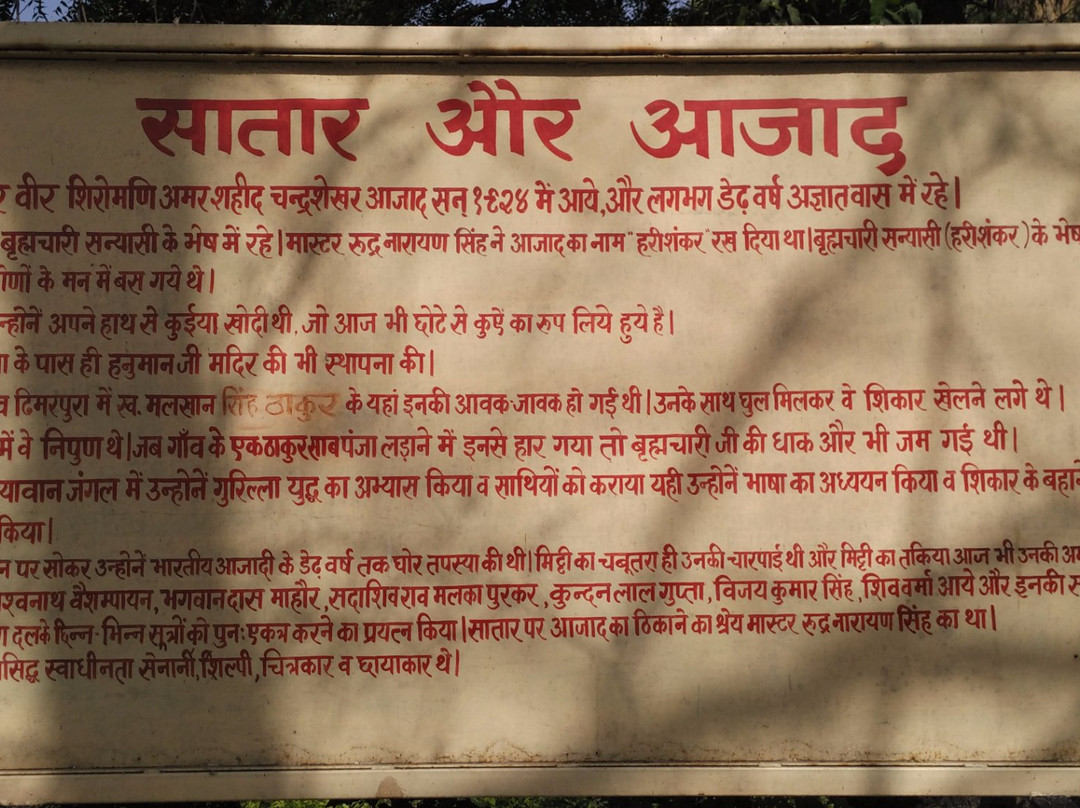 सातार और आजाद
र वीर शिरोमणि अमर शहीद चन्द्रशेखर आजाद सन् १९२४ में आये, और लगभग डेढ़ वर्ष अज्ञातवास में रहे।
बृह्मचारी सन्यासी के भेष में रहे। मास्टर रूद्रनारायण सिंह ने आजाद का नाम "हरीशंकर" रख दिया था। बृह्मचारी सन्यासी (हरीशंकर) के भेष
ीणों के मन में बस गये थे।
न्होनें अपने हाथ से कुईया खोदी थी, जो आज भी छोटे से कुऐं का रूप लिये हुये है।
ा के पास ही हनुमान जी मदिर की भी स्थापना की।
व ढिमरपुरा में स्व. मलखान सिंह ठाकुर के यहां इनकी आवक-जावक हो गई थी। उनके साथ घुल मिलकर वे शिकार खेलने लगे थे।
में वे निपुण थे। जब गाँव के एक ठाकुर साब पंजा लड़ाने में इनसे हार गया तो बृह्मचारी जी की धाक और भी जम गई थी।
यावान जंगल में उन्होनें गुरिल्ला युद्ध का अभ्यास किया व साथियों को कराया यही उन्होनें भाषा का अध्ययन किया व शिकार के बहाने
किया।
न पर सोकर उन्होनें भारतीय आजादी के डेढ़ वर्ष तक घोर तपस्या की थी। मिट्टी का चबूतरा ही उनकी चारपाई थी और मिट्टी का तकिया आज भी उनकी
श्वनाथ वैशम्पायन, भगवानदास माहौर, सदाशिवराव मलकापुरकर, कुन्दन लाल गुप्ता, विजय कुमार सिंह, शिव वर्मा आये और इनकी
दल के छिन्न-भिन्न सूत्रों को पुनः एकत्र करने का प्रयत्न किया। सातार पर आजाद का ठिकाने का श्रेय मास्टर रूद्रनारायण सिंह का था।
सिद्ध स्वाधीनता सेनानी, शिल्पी, चित्रकार व छायाकार थे।